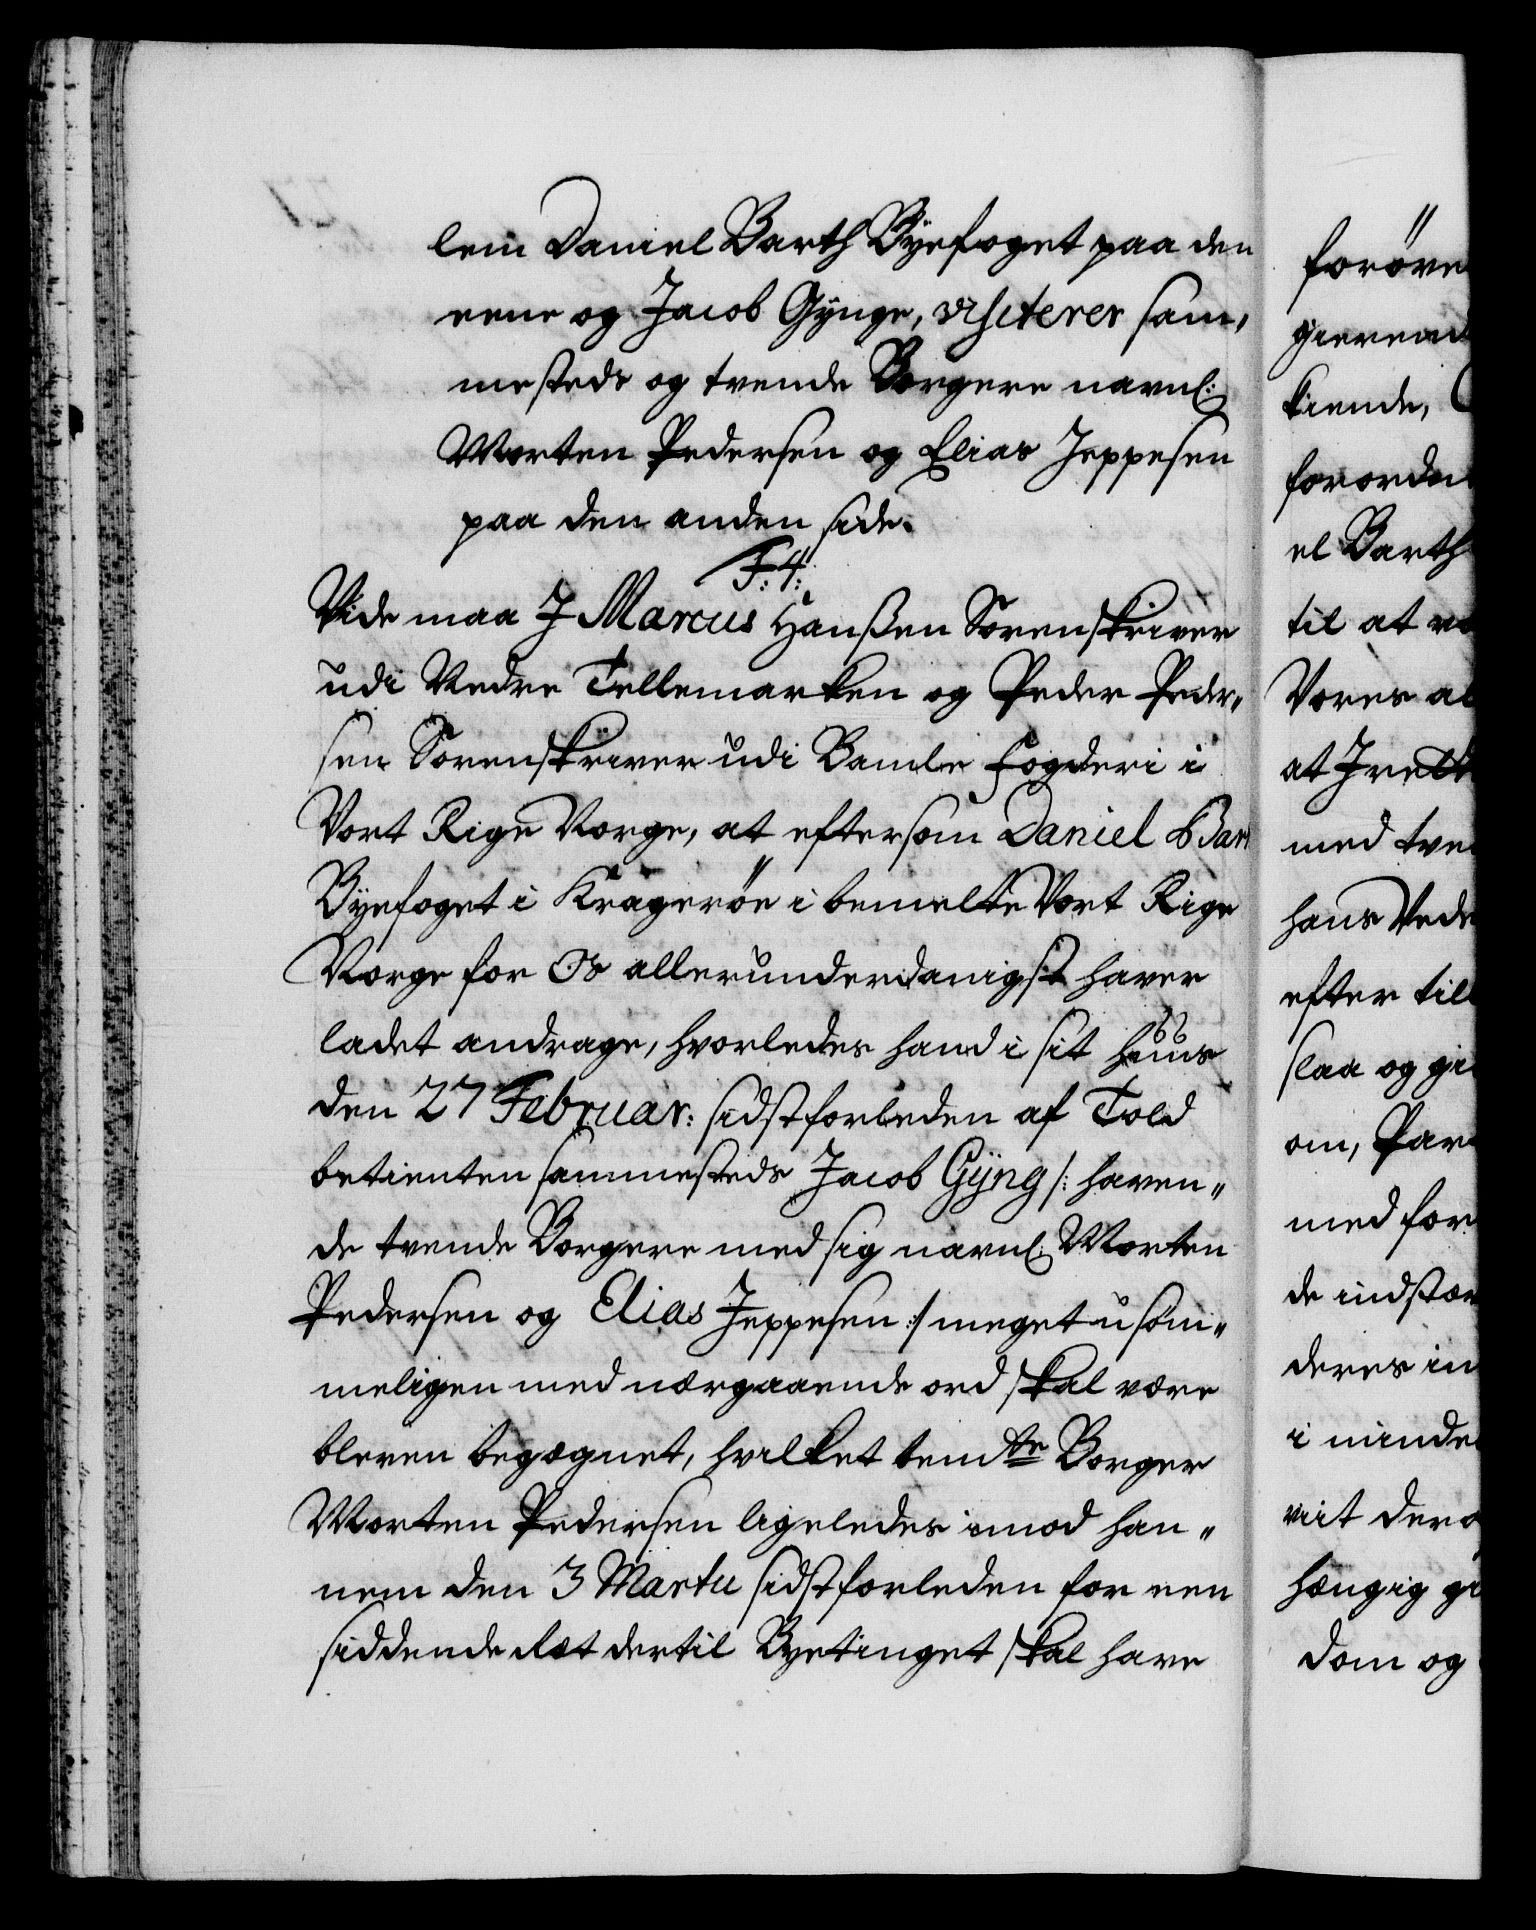 lem Daniel Barth Byefoget paa den
eene og Jacob Gynge, visiterer sam,
mesteds og tvende Borgere navnl:
Morten Pedersen og Elias Jeppesen
paa den anden side.
F: 4:
Vide maa I Marcus Hanssen Sorenskriver
udi Nedre Tellemarken og Peder Peder„
sen Sorenskriver udi Bamle Fogderi i
Vort Rige Norge, at eftersom Daniel Bart
Byefoget i Kragerøe i bemelte Vort Rige
Norge for Os allerunderdanigst haver
ladet andrage, hvorledes hand i sit huus
den 27 Februar: sidstforleden af Told
betienten sammesteds Jacob Gyng /: haven„
de tvende Borgere med sig navnl. Morten
Pedersen og Elias Jeppesen :/ meget usøm„
meligen med nærgaaende ord skal være
bleven begægnet, hvilket bemte Borger
Morten Pedersen ligeledes imod han„
nem den 3 Martii sidstforleden for een
siddende Ræt dertil Byetinget skal have
forøve
gierend
kiende,
forordn
el Barth
til at v
Vores al
at Irett
med tve
hans Ved
efter till
slaa og gi
om, Par
med for
de indstæv
deres in
i minde
viit der
hængig gi
dom og